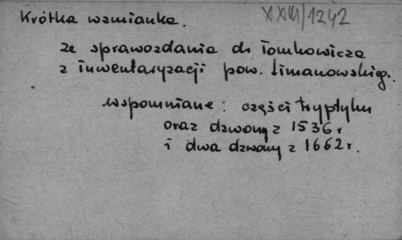 Krótka wzmianka.
XXIII/1242
ze sprawozdania dr Tomkowicza
z inwentaryzacji pow. limanowskieg.
wspomniane: części tryptyku
oraz dzwony z 1536 r
i dwa dzwony z 1662 r.